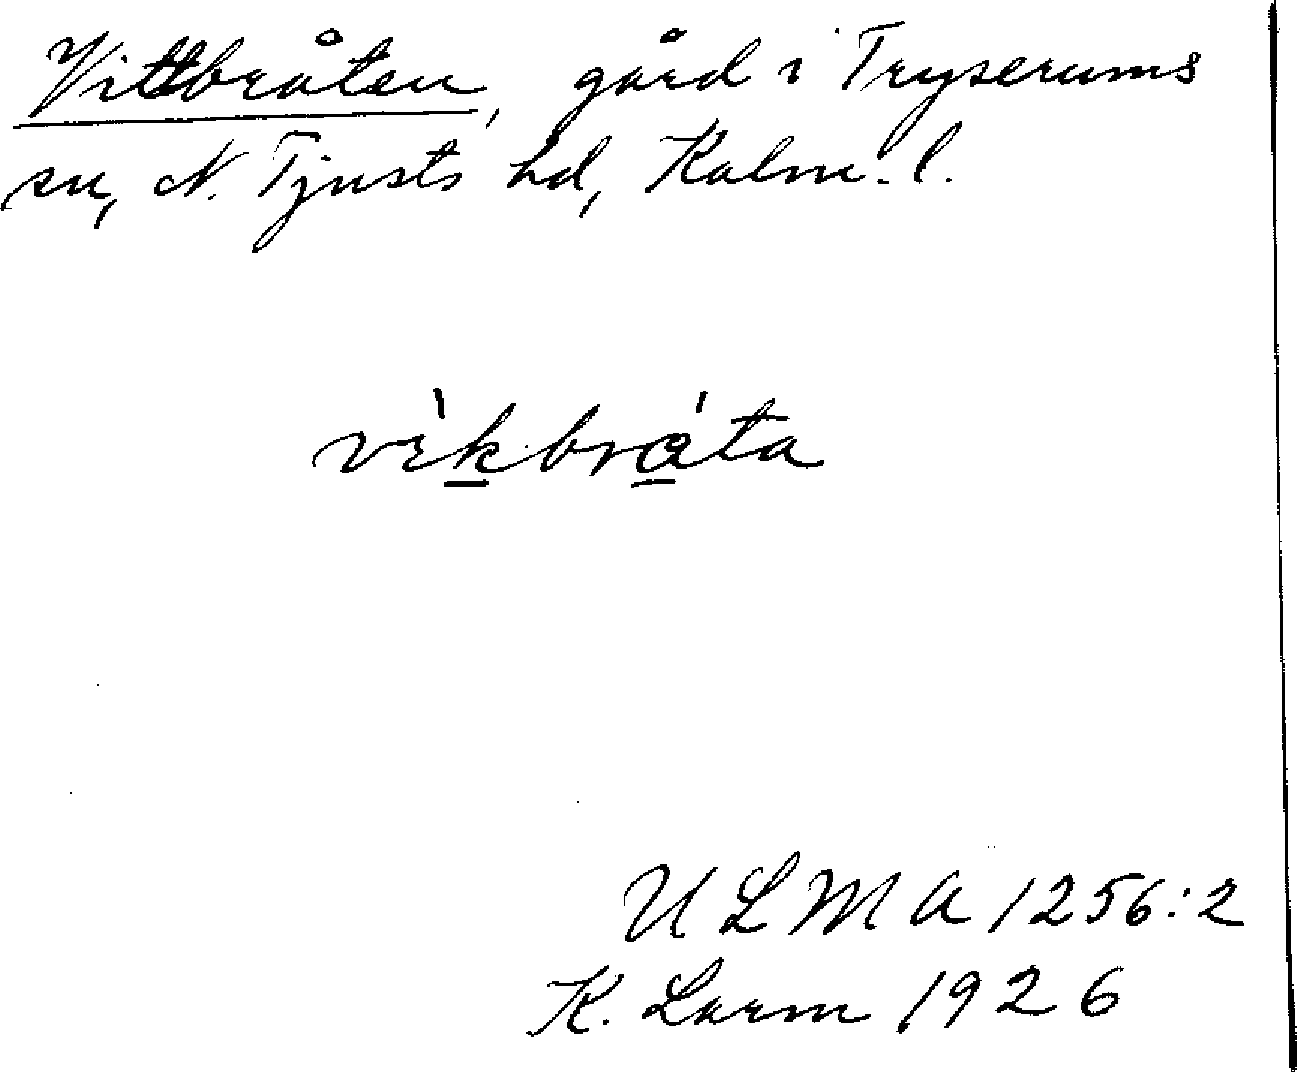 Vittbråten, gård i Tryserums
sn, N. Tjusts hd, Kalm. l.
vìkbráta
ULMA 1256:2
K. Larm 1926